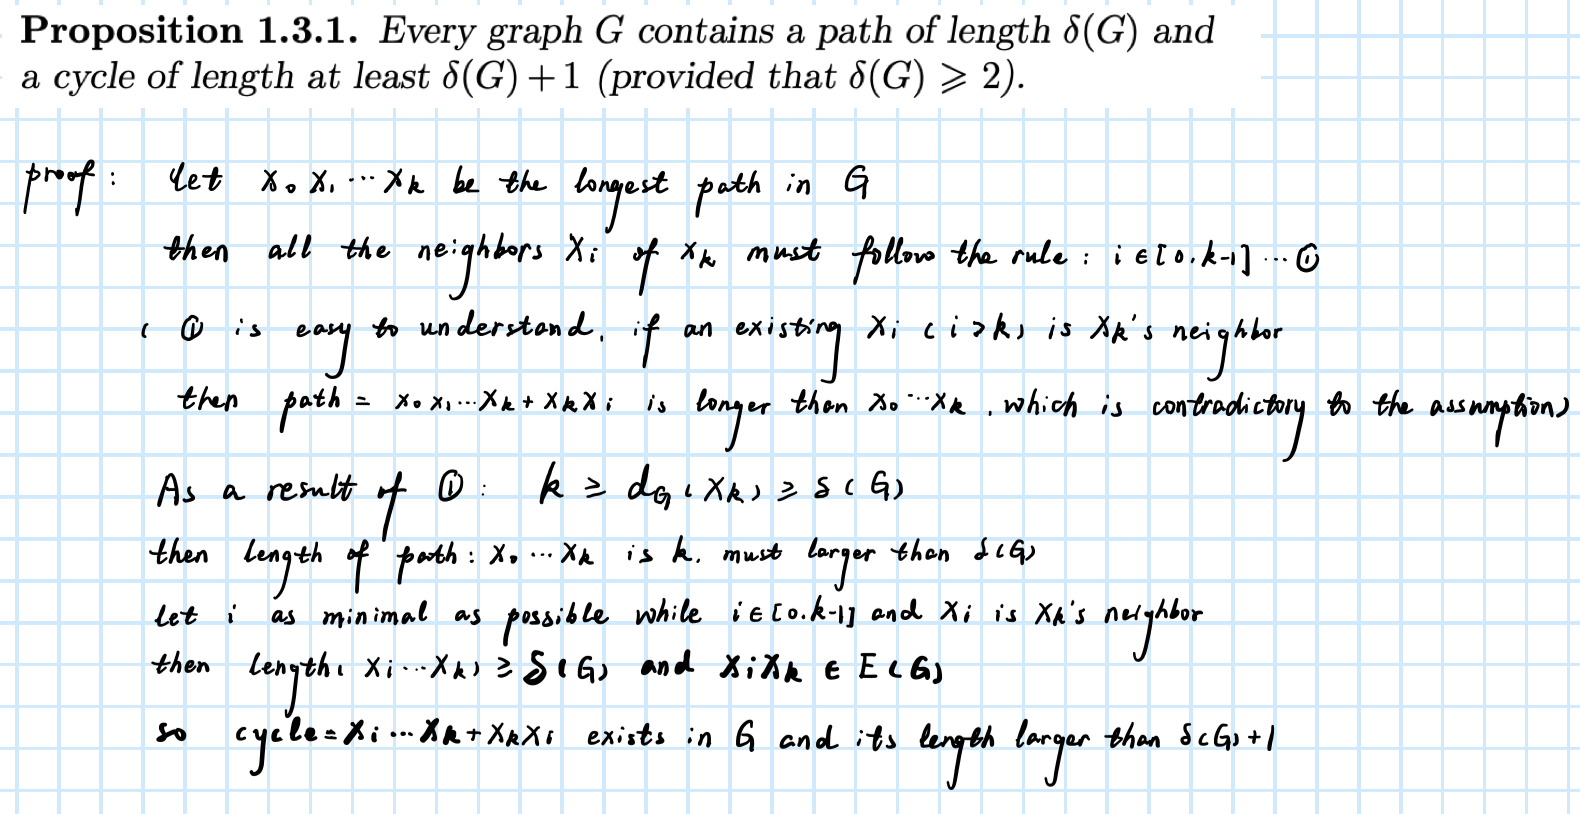 Proposition 1.3.1. Every graph G contains a path of length δ(G) and
a cycle of length at least δ(G)+1 (provided that δ(G) ⩾ 2).
proof : Let x₀ x₁ ··· xₖ be the longest path in G
then all the neighbors xᵢ of xₖ must follow the rule : i ∈ [0, k-1] ··· ①
( ① is easy to understand, if an existing xᵢ (i > k) is xₖ's neighbor
then path = x₀ x₁ ··· xₖ + xₖ xᵢ is longer than x₀ ··· xₖ , which is contradictory to the assumption)
As a result of ① : k ≥ d_G (xₖ) ≥ δ(G)
then length of path : x₀ ··· xₖ is k, must larger than δ(G)
let i as minimal as possible while i ∈ [0, k-1] and xᵢ is xₖ's neighbor
then length( xᵢ ··· xₖ) ≥ δ(G) and xᵢxₖ ∈ E(G)
so cycle = xᵢ ··· xₖ + xₖxᵢ exists in G and its length larger than δ(G)+1